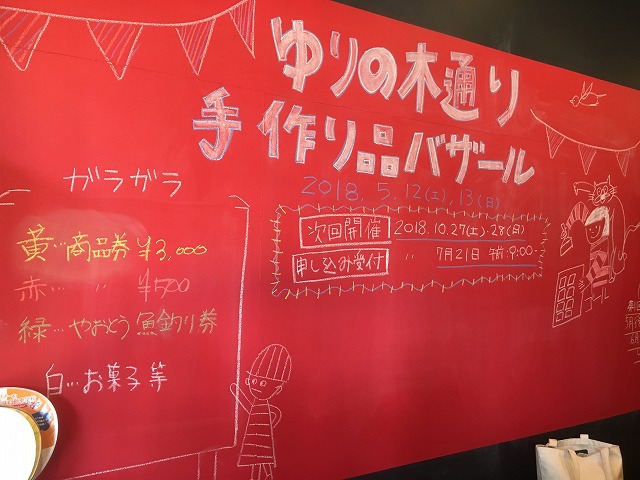 ゆりの木通り
手作り品バザール
2018, 5. 12(土), 13(日)
次回開催 2018. 10.27(土)・28(日)
申し込み受付 〃 7月21日 午前9:00-
ガラガラ
黄…商品券 ¥3,000
赤… 〃 ¥500
緑…やおとう 魚釣り券
白…お菓子 等